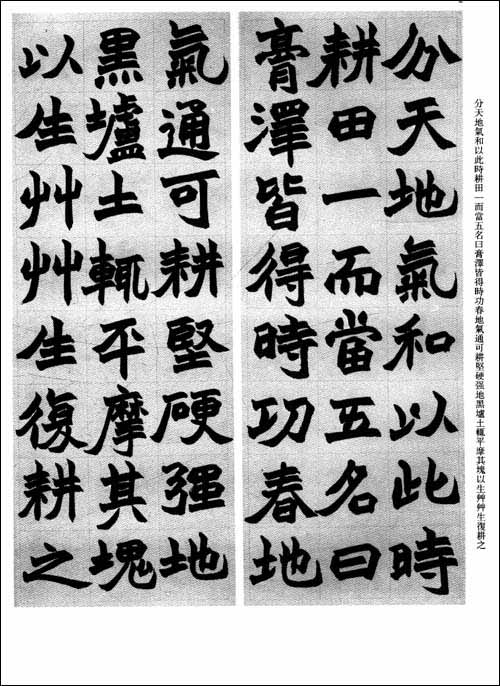 分天地氣和以此時耕田一而當五名曰膏澤皆得時功春地氣通可耕堅硬强地黑壚土輒平摩其塊以生艸艸生復耕之
分天地氣和以此時
耕田一而當五名曰
膏澤皆得時功春地
氣通可耕堅硬强地
黑壚土輒平摩其塊
以生艸艸生復耕之